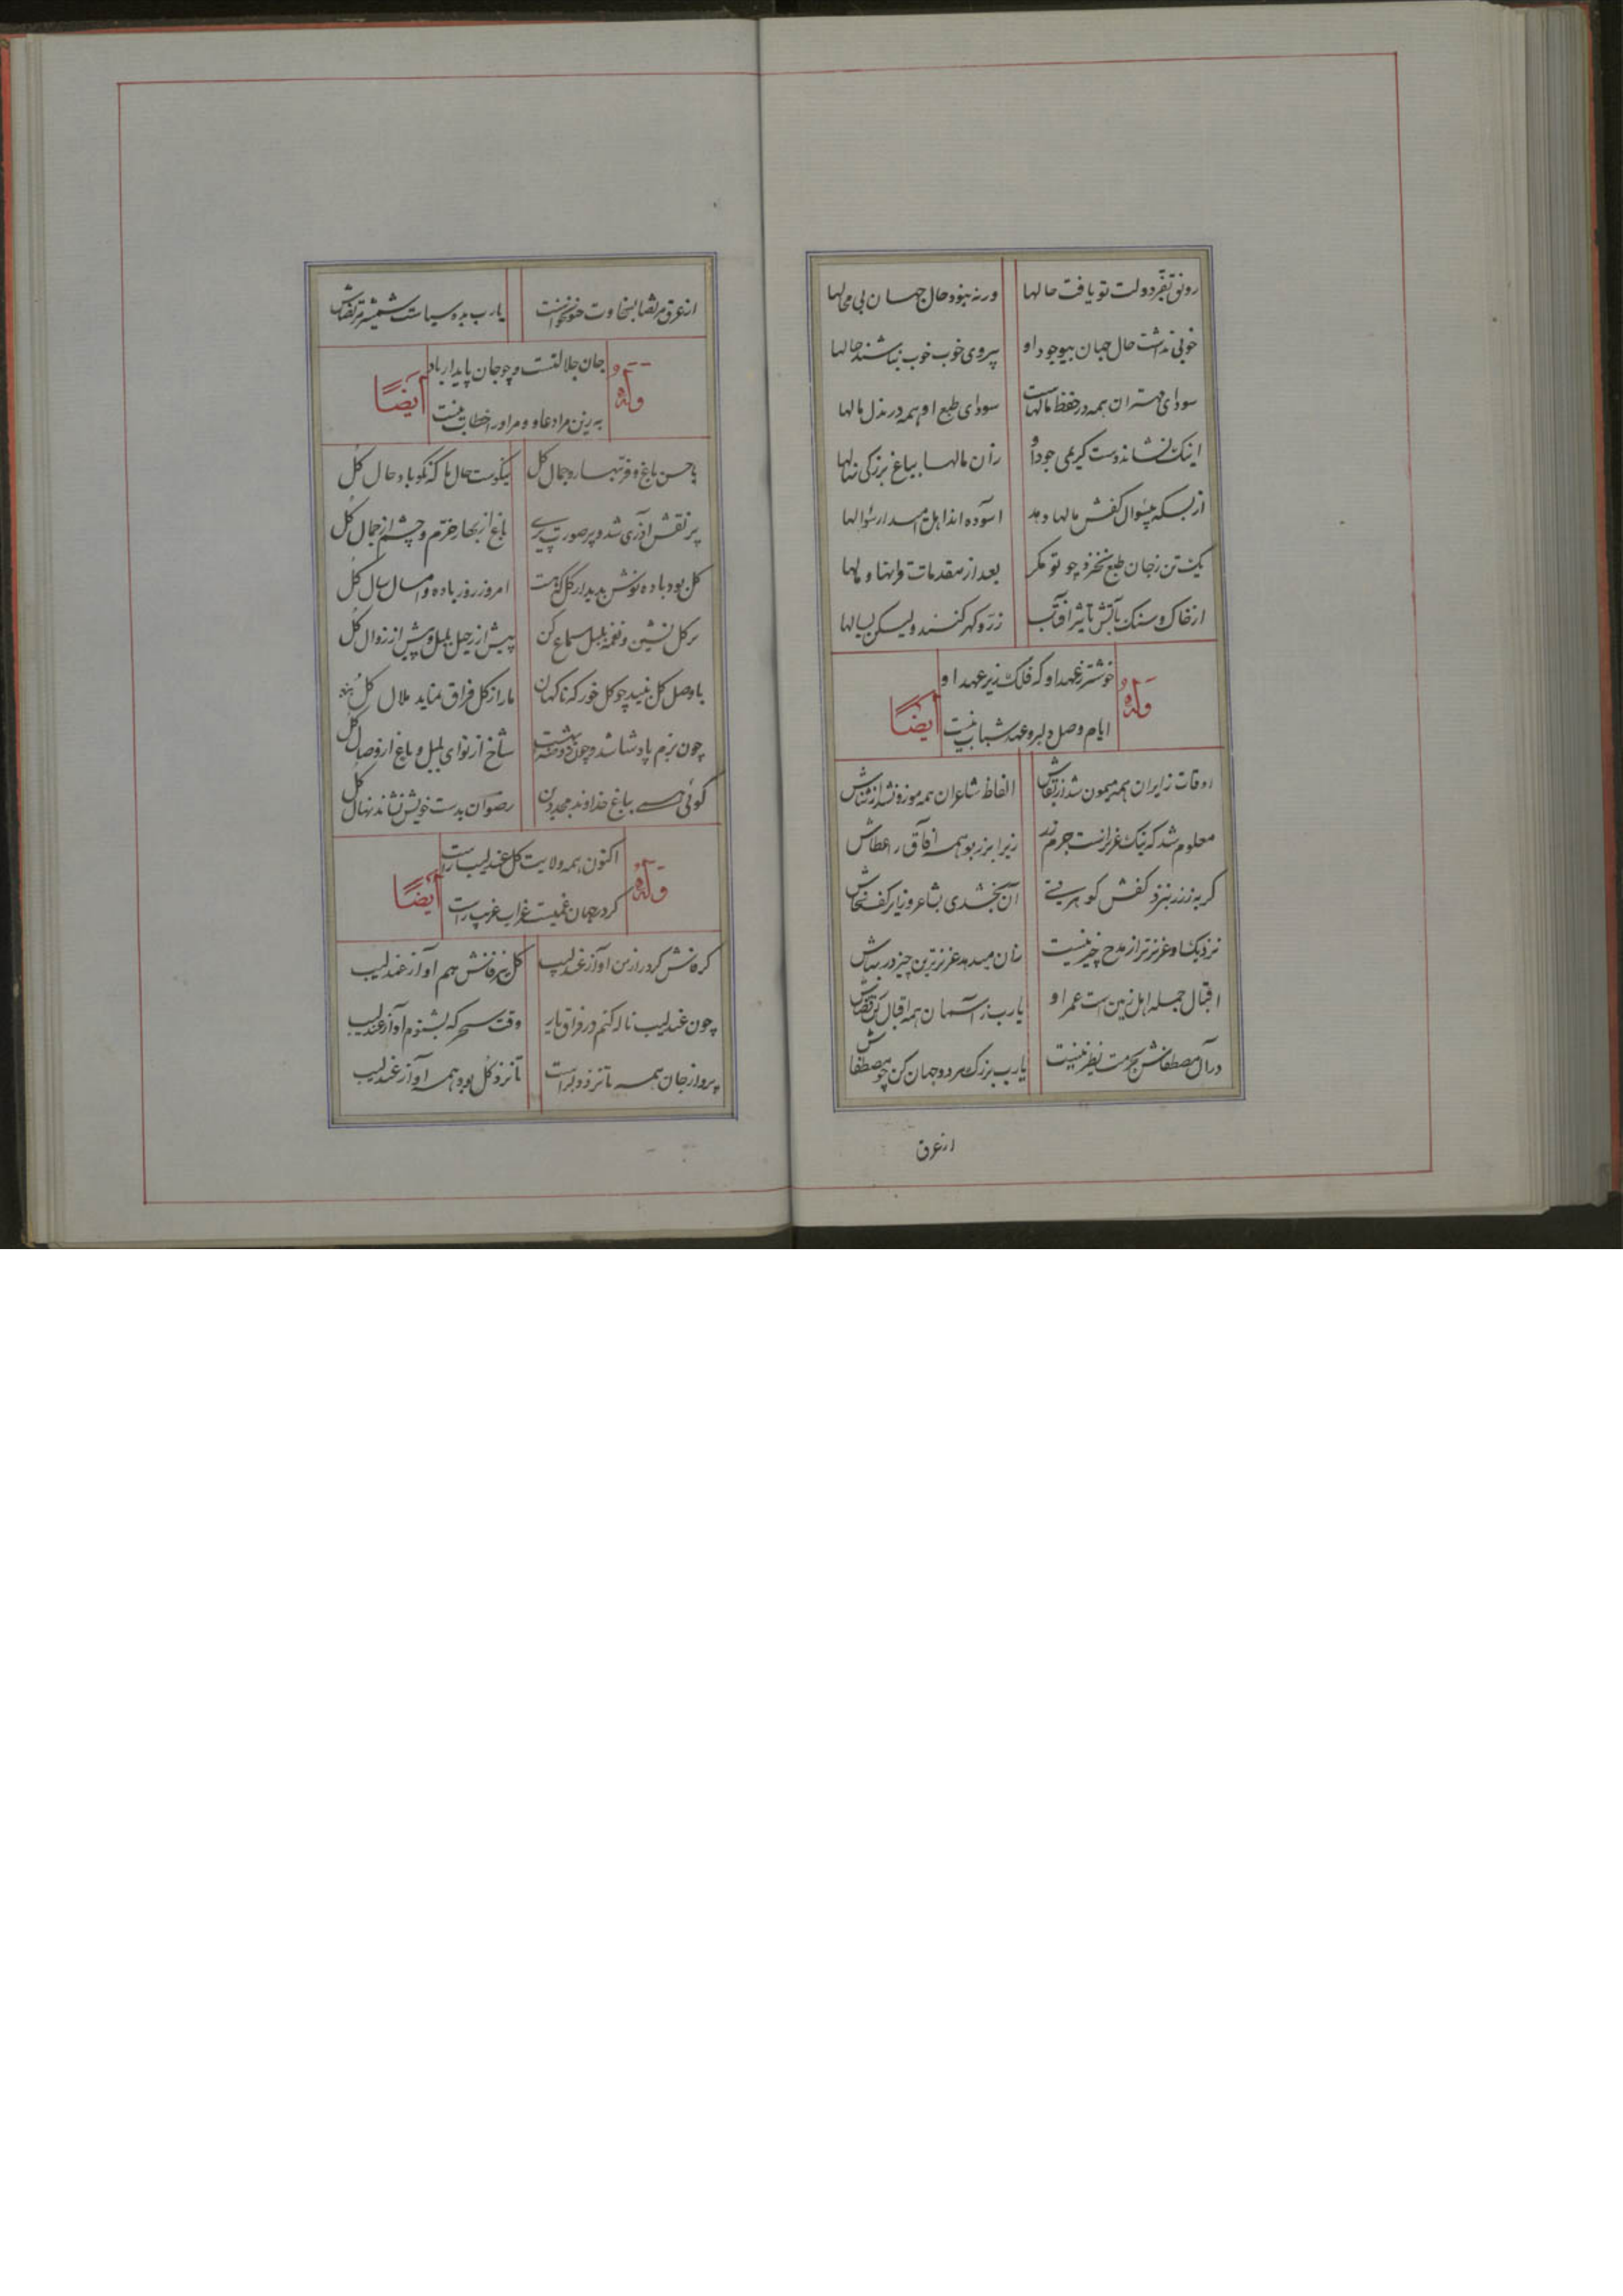 رونق بفر دولت تو یافت حالها ورنه نبود حال جهان بی محالها
خوبی نداشت حال جهان بیوجود او بیروی خوب خوب نباشند حالها
سودای مهتران همه در حفظ مالهاست سودای طبع او همه در بذل مالها
اینک نشاند دست کریمی جود او زان مالها بباغ بزرگی نهالها
از بسکه بیسوال کفش مالها دهد آسوده اند اهل امید از سؤالها
یک تن ز جان طبع نخرد چو تو مکر بعد از مقدمات و
از خاک و سنک تابش تأثیر آفتاب زر و کهر کنند ولیکن بسالها
وله خوشتر ز عهد او که فلک زیر عهد او ایضاً
ایام وصل دلبر و عهد شباب نیست
اوقات زایران همه میمون شد از بقاش الفاظ شاعران همه موزون شد از ثناش
معلوم شد که نیک عزیزست جرم زر زیرا بزر بود همه آفاق را عطاش
کر به ز زر بنزد کفش کوهریستی آن بخشدی بشاعر و زایر کف سخاش
نزدیک او عزیزتر از مدح چیز نیست زان میدهد عزیزترین چیز در بهاش
اقبال جمله اهل زمین است عمر او یارب ز آسمان همه اقبال کن قضاش
در آل مصطفاش بحرمت نظیر نیست یارب بزرک هر دو جهان کن چو مصطفاش
از عرق
از عرق مرتضا بسخاوت خواست یارب بده سیاست شمشیر مرتضاش
وله جان جلالتست و چو جان پایدار باد ایضاً
به زین مرا دعا و مراد خطاب نیست
با حسن باغ و فر بهار و جمال کل نیکوست حال ما که نکو باد حال کل
پر نقش آذری شد و پر صورت پری باغ از بهار خرم و چشم از جمال کل
کل بود باده نوش بدیدار کل که هست امروز روز باده و امسال سال کل
بر کل نشین و نغمه بلبل سماع کن پیش از رحیل بلبل و پیش از زوال کل
با وصل کل نبید چو کل خور که ناکهان ما را ز کل فراق نماید ملال کل
چون بزم پادشا شد و چون روضه بهشت شاخ از نوای بلبل و باغ از وصال کل
کوئی همی بباغ خداوند مجد دین رضوان بدست خویش نشاند نهال کل
وله اکنون همه ولایت کل عندلیب راست ایضاً
کرد جهان غمیست غراب غریب راست
کر فاش کرد راز من آواز عندلیب کل نیز فاش هم آواز عندلیب
چون عندلیب ناله کنم در فراق یار وقت سحر که بشنوم آواز عندلیب
پرواز جان همه تا نزد دلبر است تا نزد کل بود همه آواز عندلیب